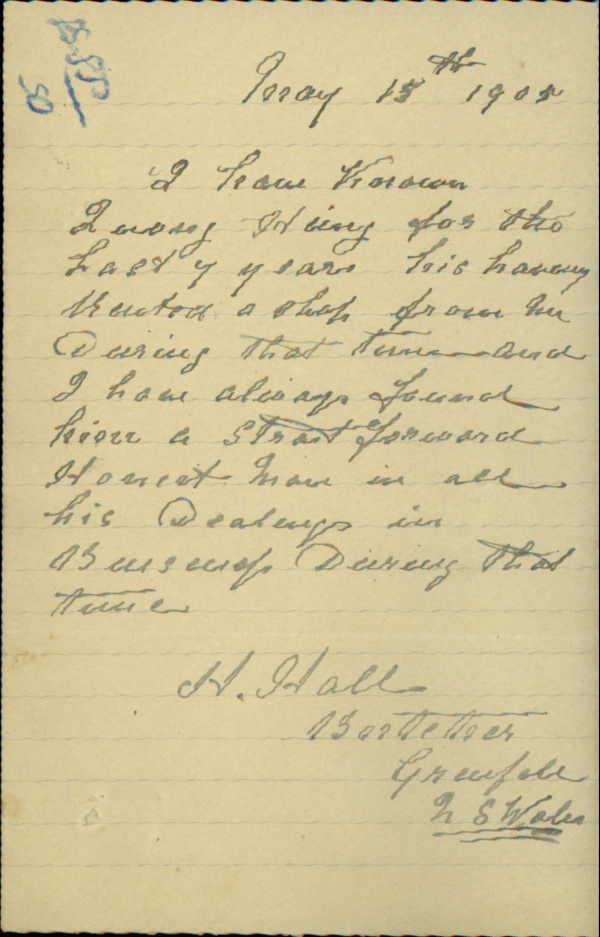 May 15th 1905
I have Known
Quong Hing for the
Last 7 years his having
Rented a shop from me
During that time and
I have always found
him a strait forward
Honest Man in all
his Dealings in
Busness During that
time
H. Hall
Grenfell
N S Wales